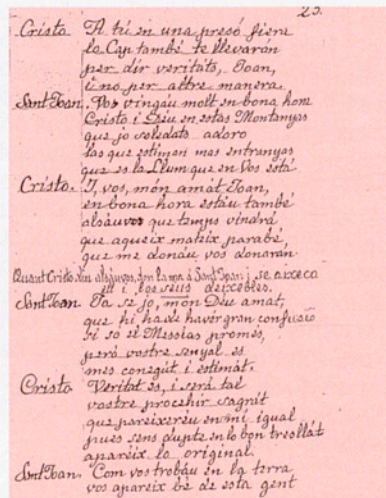 25.
Cristo A tú en una presó fiera
lo Cap també te llevarán
per dir veritats, Joan,
i no per altre manera.
Sant Joan. Vos vingáu molt en bona hora
Cristo i Déu en estas Montanyas
que jo soledats adoro
las que estiman mes entranyas
que es la Llum que en Vos está.
Cristo. I, vos, món amát Joan,
en bona hora estáu també
alsáuvos que temps vindrá
que aqueix mateix parabé,
que me donáu vos donarán
Quant Cristo diu alsáuvos, don la má á Sant Joan i se aixeca
ell i los seus deixebles.
Sant Joan. Ja se jo, món Déu amat,
que hi ha de havér gran confusió
si so el Messias promés,
peró vostre senyal es
mes conegút i estimát.
Cristo Veritat és, i será tal
vostre procehir sagrát
que pareixeréu en mí igual
pues sens dupte en lo bon tresllát
apareix lo original.
Sant Joan. Com vos trobáu en la terra
vos apareix bé de esta gent